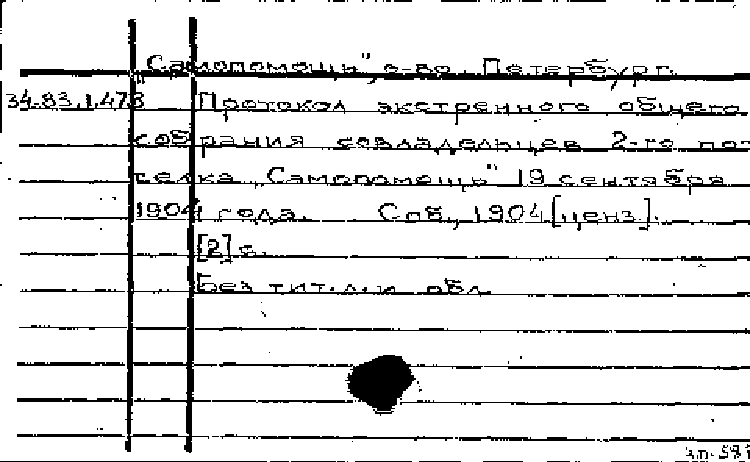 „Самопомощь", о-во. Петербург.
34.83.1.478 Протокол экстренного общего
собрания совладельцев 2-го по-
селка „Самопомощь" 19 сентября
1904 года. Спб., 1904 [ценз].
[2] с.
Без тит. л. и обл.